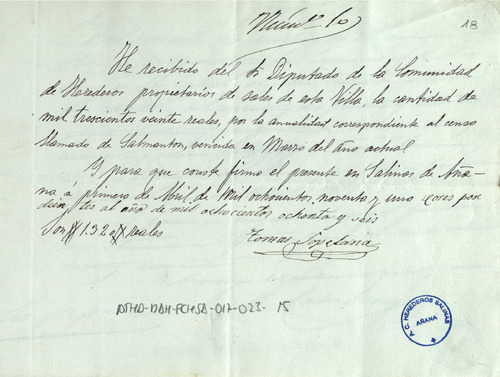 Núm.º 10
18
He recibido del Sr Diputado de la Comunidad
de Herederos propietarios de sales de esta Villa, la cantidad de
mil trescientos veinte reales, por la anualidad correspondiente al censo
llamado de Salmanton, vencida en Marzo del año actual
Y para que conste firmo el presente en Salinas de Aña-
na a primero de Abril de mil ochocientos noventa y uno corespon
dientes al año de mil ochocientos ochenta y seis
Son 1.320 Reales
Tomas
ATHA-DAH-FCHSA-017-023-15
C. HEREDEROS SALINAS
AÑANA